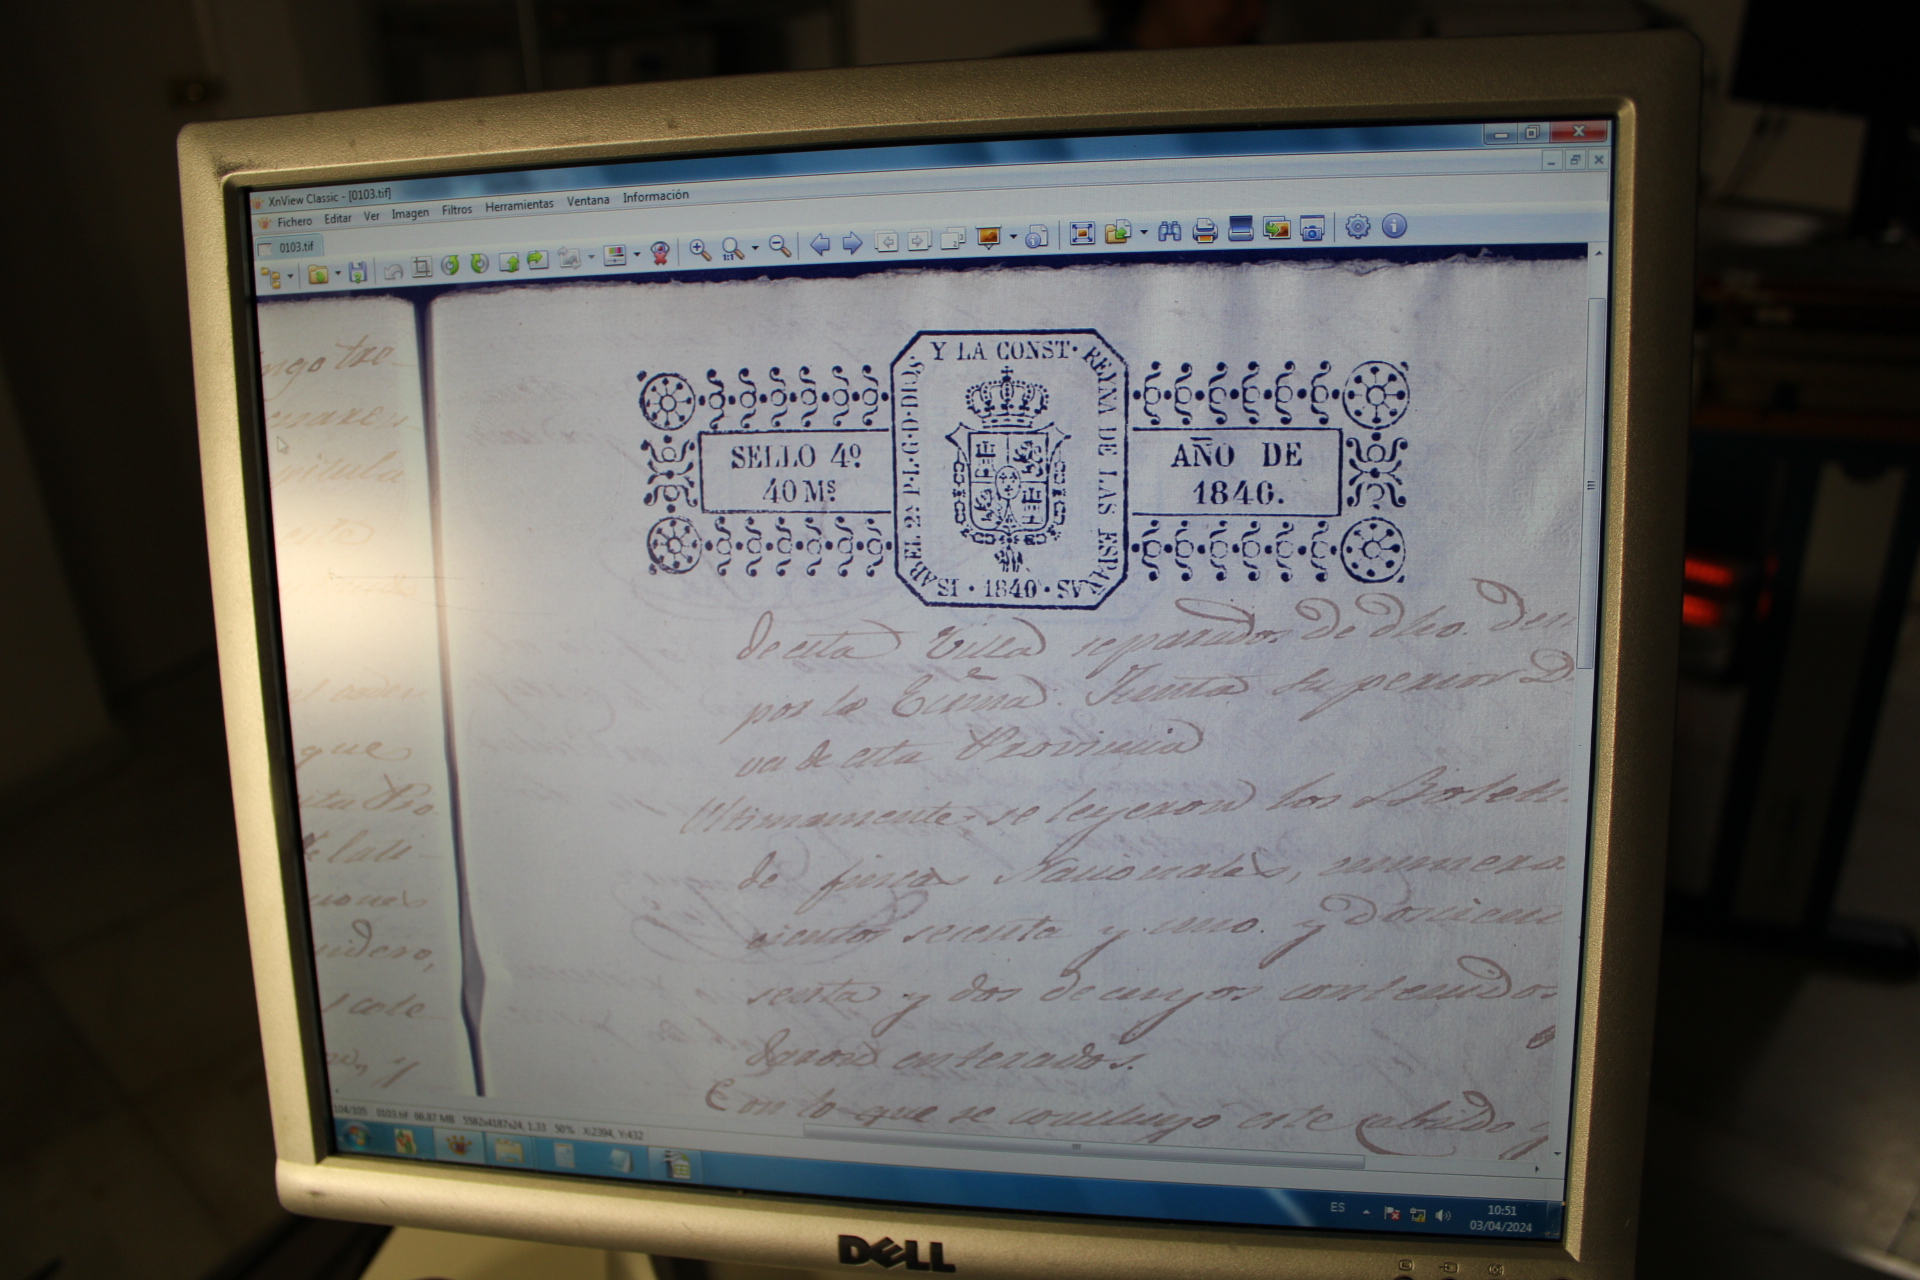 XnView Classic - [0103.tif]
Fichero Editar Ver Imagen Filtros Herramientas Ventana Información
0103.tif
ISABEL 2ª P. L. G. D. DIOS Y LA CONST. REYNA DE LAS ESPAÑAS
SELLO 4º
40 Mˢ
AÑO DE
1840.
1840
ngo tre-
que
nidero,
de esta Villa separados de dho.
por la Exma. Junta superior D
va de esta Provincia
Ultimamente se leyeron los Boleti
de fincas Nacionales, numero
cientos sesenta y uno. y doscien
senta y dos de cuyos contenidos
daron enterados.
Con lo que se concluyo este cabildo y
104/105 0103.tif 66.87 MB 5582x4187x24, 1.33 50% X:2394, Y:432
ES
10:51
03/04/2024
DELL